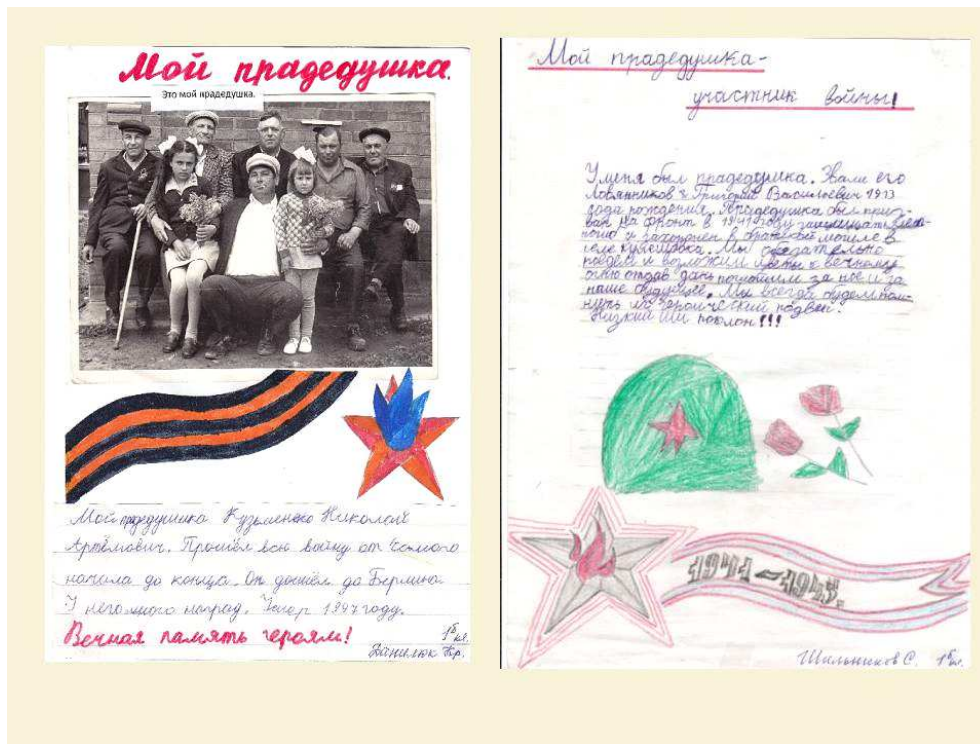 Мой прадедушка.
Это мой прадедушка.
Мой прадедушка Кузьменко Николай
Артёмович. Прошёл всю войну от самого
начала до конца. Он дошёл до Берлина.
У него много наград. Умер 1997 году.
Вечная память героям!
1б кл.
Данелюк Кр.
Мой прадедушка-
участник войны!
У меня был прадедушка. Звали его
Ловянников Григорий Васильевич 1913
года рождения. Прадедушка был приз-
ван на фронт в 1941 году защищать
похоронен в братской могиле в
селе Кулешовка. Мы
поедем и возложим цветы к вечному
огню отдав дань погибшим за нас и за
наше будущее. Мы всегда будем пом-
нить их героический подвиг.
Низкий им поклон!!!
1941-1945.
Шильников С. 1б кл.